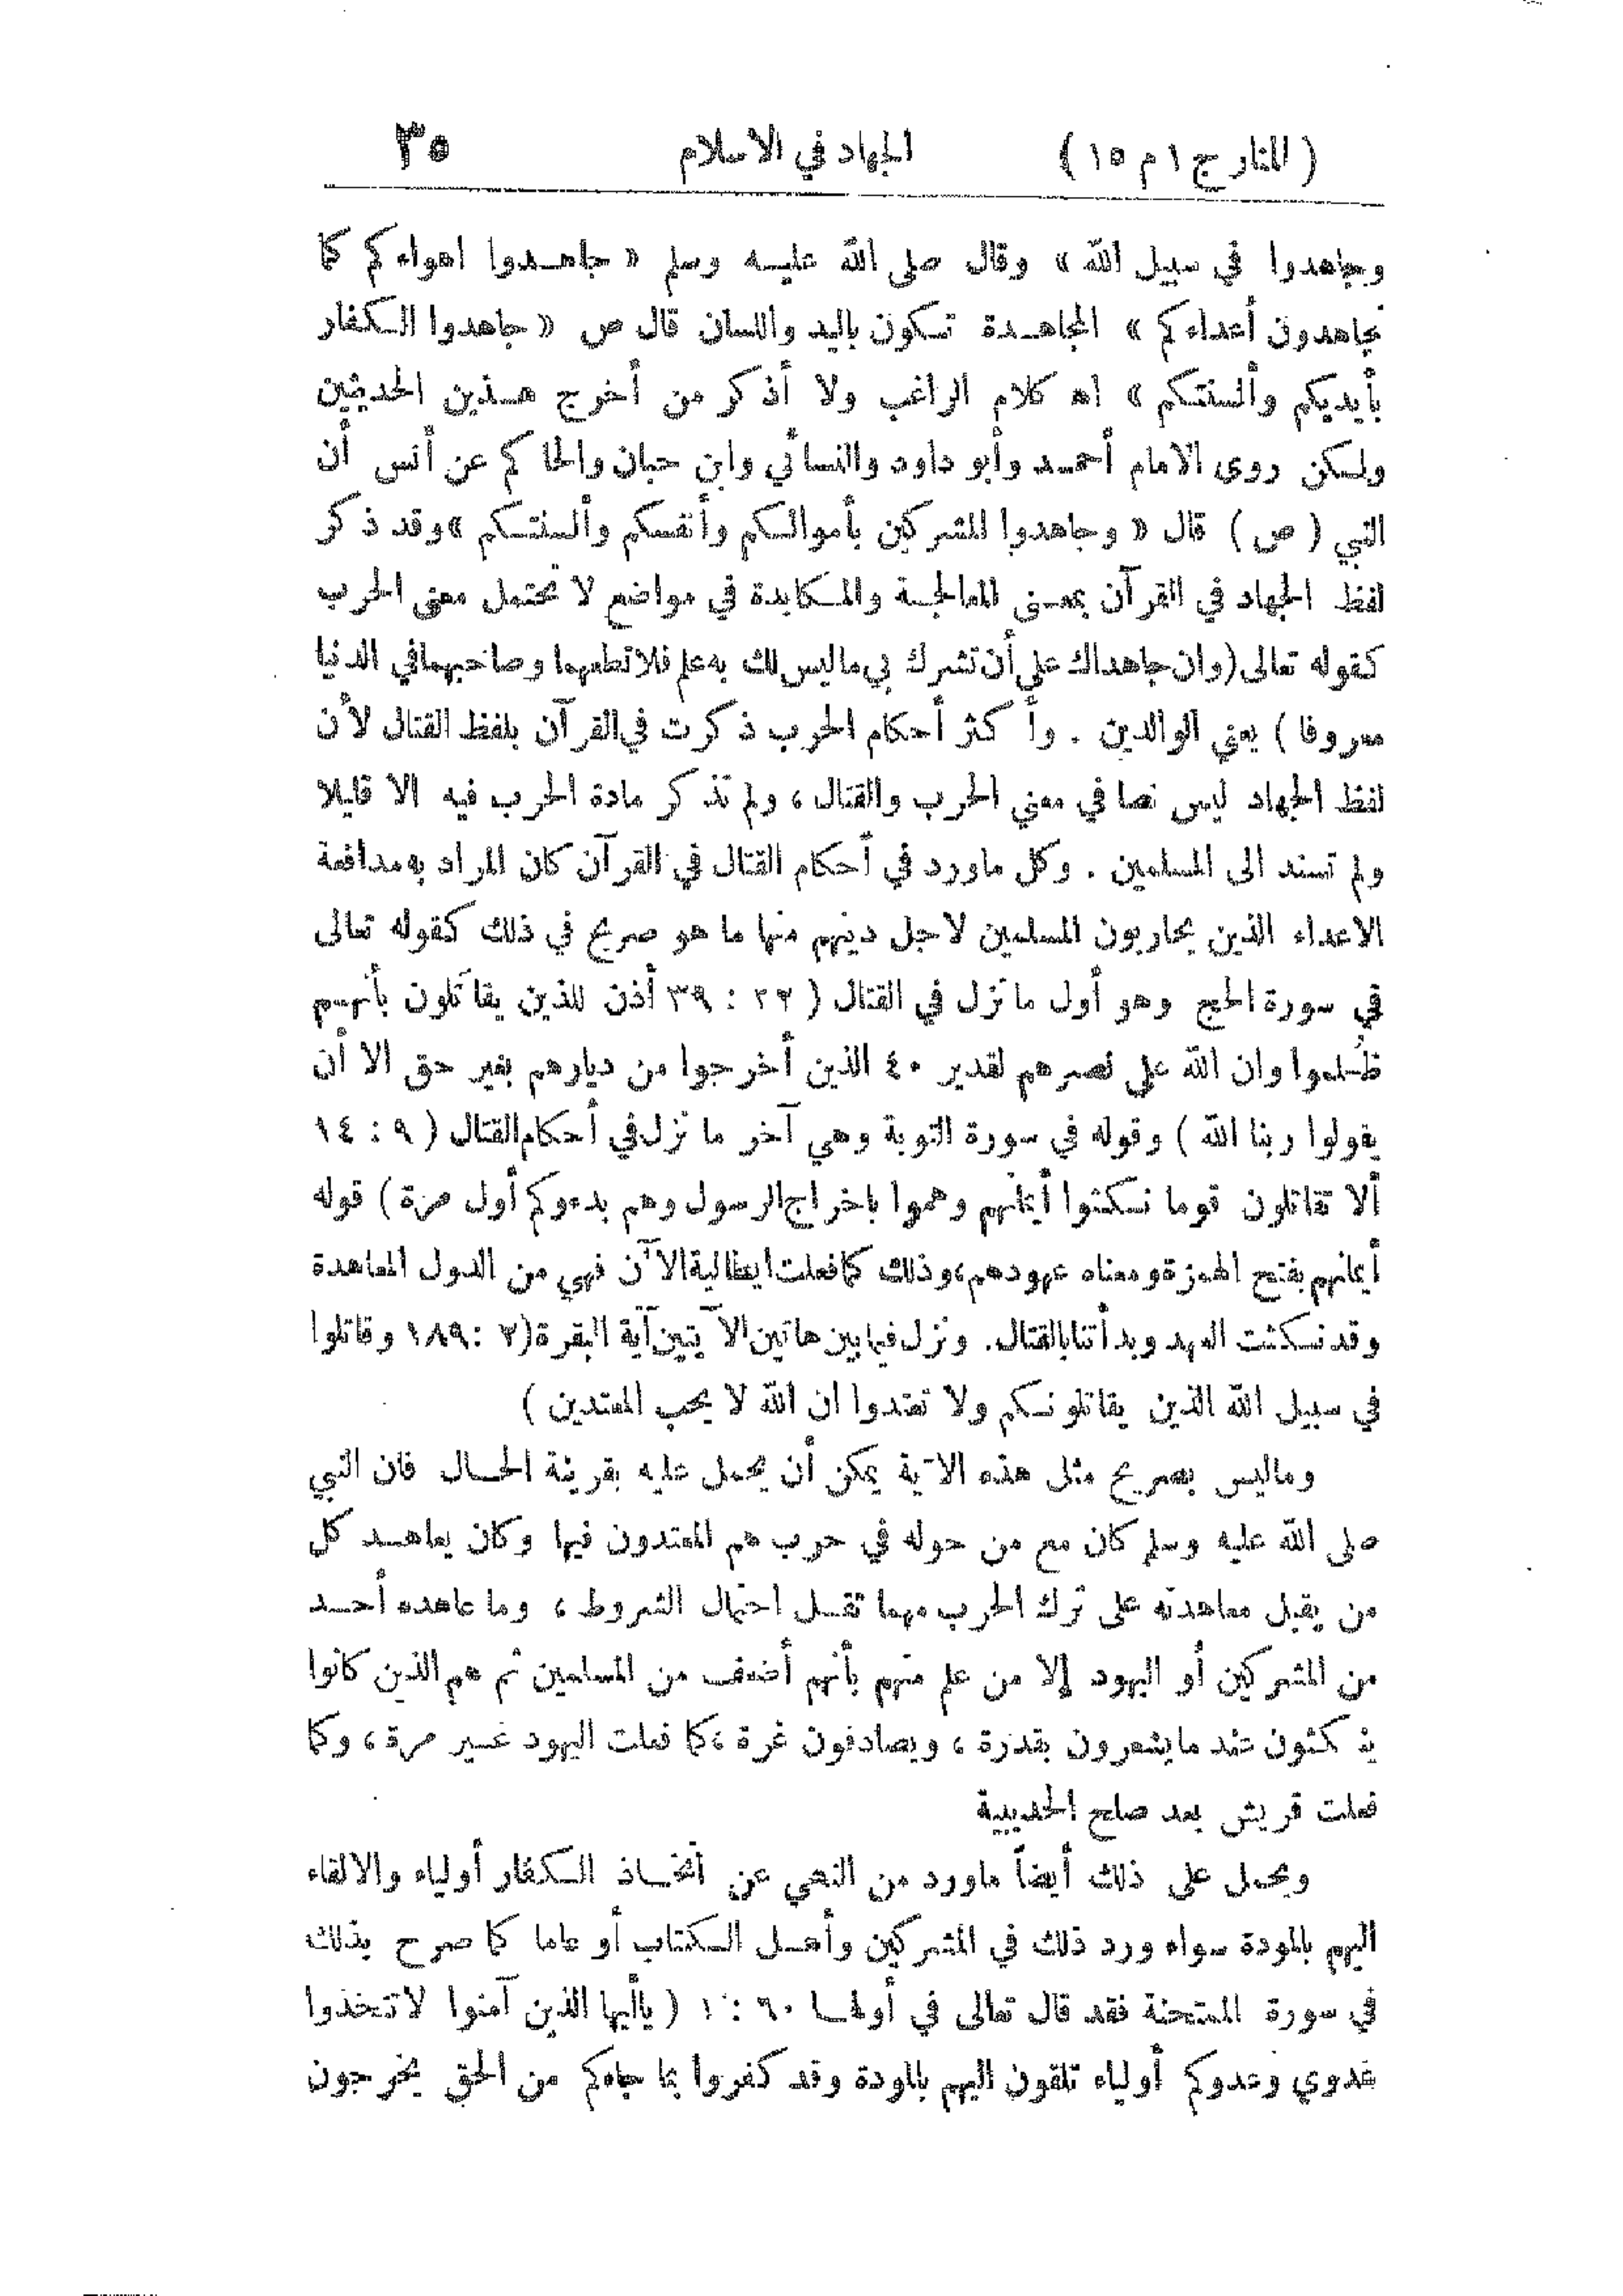 ( المنار ج ١ م ١٥ ) الجهاد في الاسلام ٣٥
وجاهدوا في سبيل الله » وقال صلى الله عليه وسلم « جاهدوا اهواءكم كما
تجاهدون أعداءكم » المجاهدة تكون باليد واللسان قال ص « جاهدوا الكفار
بأيديكم وألسنتكم » اه كلام الراغب ولا أذكر من أخرج هذين الحديثين
ولكن روى الامام أحمد وأبو داود والنسائي وابن حبان والحاكم عن أنس أن
النبي ( ص ) قال « وجاهدوا المشركين بأموالكم وأنفسكم وألسنتكم » وقد ذكر
لفظ الجهاد في القرآن بمعنى المعالجة والمكابدة في مواضع لا تحتمل معنى الحرب
كقوله تعالى ( وان جاهداك على أن تشرك بي ماليس لك به علم فلا تطعهما وصاحبهما في الدنيا
معروفا ) يعني الوالدين . وأكثر أحكام الحرب ذكرت في القرآن بلفظ القتال لأن
لفظ الجهاد ليس نصا في معنى الحرب والقتال ، ولم تذكر مادة الحرب فيه الا قليلا
ولم تسند الى المسلمين . وكل ماورد في أحكام القتال في القرآن كان المراد به مدافعة
الاعداء الذين يحاربون المسلمين لاجل دينهم منها ما هو صريح في ذلك كقوله تعالى
في سورة الحج وهو أول ما نزل في القتال ( ٢٢ : ٣٩ أذن للذين يقاتَلون بأنهم
ظُلموا وان الله على نصرهم لقدير ٤٠ الذين أخرجوا من ديارهم بغير حق الا أن
يقولوا ربنا الله ) وقوله في سورة التوبة وهي آخر ما نزل في أحكام القتال ( ٩ : ١٤
ألا تقاتلون قوما نكثوا أيمانهم وهموا باخراج الرسول وهم بدءوكم أول مرة ) قوله
أيمانهم بفتح الهمزة ومعناه عهودهم ، وذلك كما فعلت ايطالية الآن فهي من الدول المعاهدة
وقد نكثت العهد وبدأتنا بالقتال . ونزل فيما بين هاتين الآيتين آية البقرة ( ٢ : ١٨٩ وقاتلوا
في سبيل الله الذين يقاتلونكم ولا تعتدوا ان الله لا يحب المعتدين )
وماليس بصريح مثل هذه الآية يمكن أن يحمل عليه بقرينة الحال فان النبي
صلى الله عليه وسلم كان مع من حوله في حرب هم المعتدون فيها وكان يعاهد كل
من يقبل معاهدته على ترك الحرب مهما ثقل احتمال الشروط ، وما عاهده أحد
من المشركين أو اليهود إلا من علم منهم بأنهم أضعف من المسلمين ثم هم الذين كانوا
ينكثون عند ما يشعرون بقدرة ، ويصادفون غرة ، كما فعلت اليهود غير مرة ، وكما
فعلت قريش بعد صلح الحديبية
ويحمل على ذلك أيضاً ماورد من النهي عن اتخاذ الكفار أولياء والالقاء
اليهم بالمودة سواء ورد ذلك في المشركين وأهل الكتاب أو عاما كما صرح بذلك
في سورة الممتحنة فقد قال تعالى في أولها ٦٠ : ١ ( ياأيها الذين آمنوا لا تتخذوا
عدوي وعدوكم أولياء تلقون اليهم بالمودة وقد كفروا بما جاءكم من الحق يخرجون